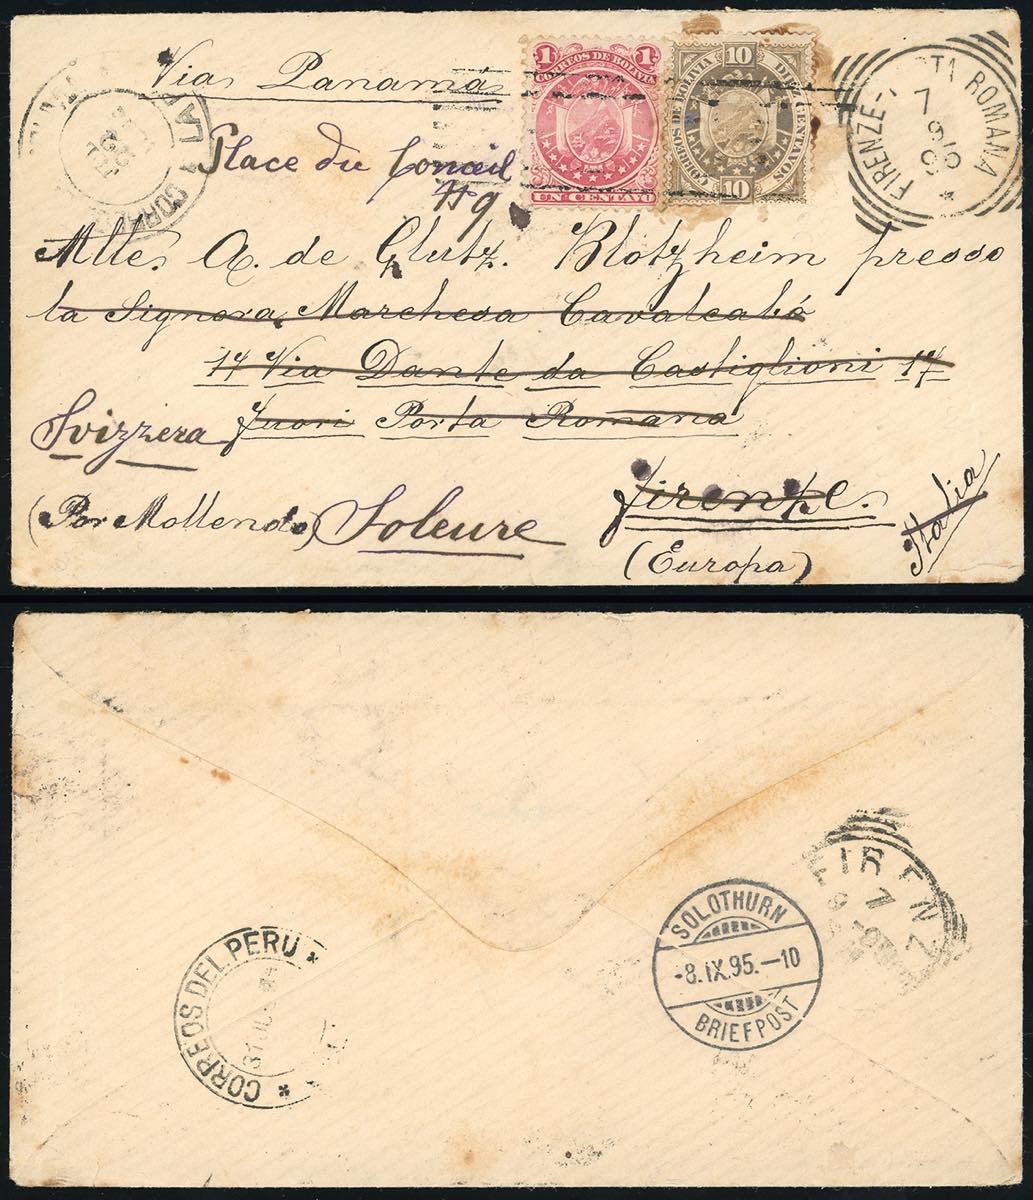 Via Panamá
Place du Conseil
Nº 9
1 1
CORREOS DE BOLIVIA
UN CENTAVO
10
CORREOS DE BOLIVIA
DIEZ CENTAVOS
10
FIRENZE
ROMANA
7
9
LA PAZ
Mlle. A. de Glutz. Blotzheim presso
la Signora Marchesa Cavalcabó
14 Via Dante da Castiglioni 14
fuori Porta Romana
Svizzera
Firenze.
(Por Mollendo) Soleure
(Europa)
Italia
CORREOS DEL PERU
31 JUL
SOLOTHURN
-8.IX.95.-10
BRIEFPOST
FIRENZ
7